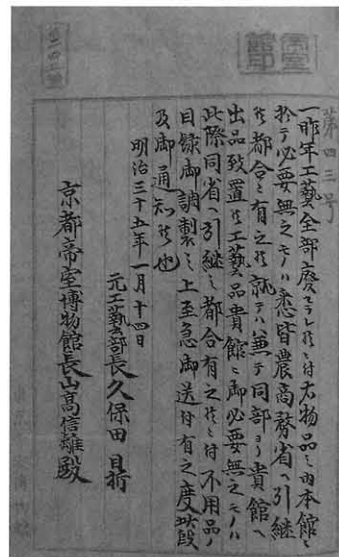 第四三号
一昨年工藝全部廃セラレ候ニ付右物品ニ内本館ニ
於テ必要無之モノハ悉皆農商務省ヘ引継
候都合ニ有之候就テハ兼テ同部ヨリ貴館ヘ
出品致置候工藝品貴館ニ御必要無之モノハ
此際同省ヘ引継ニ都合有之候ニ付不用品ノ
目録御調製之上至急御送付有之度此段
及御通知候也
明治三十五年一月十四日
元工藝部長久保田
京都帝室博物館長山高信離殿